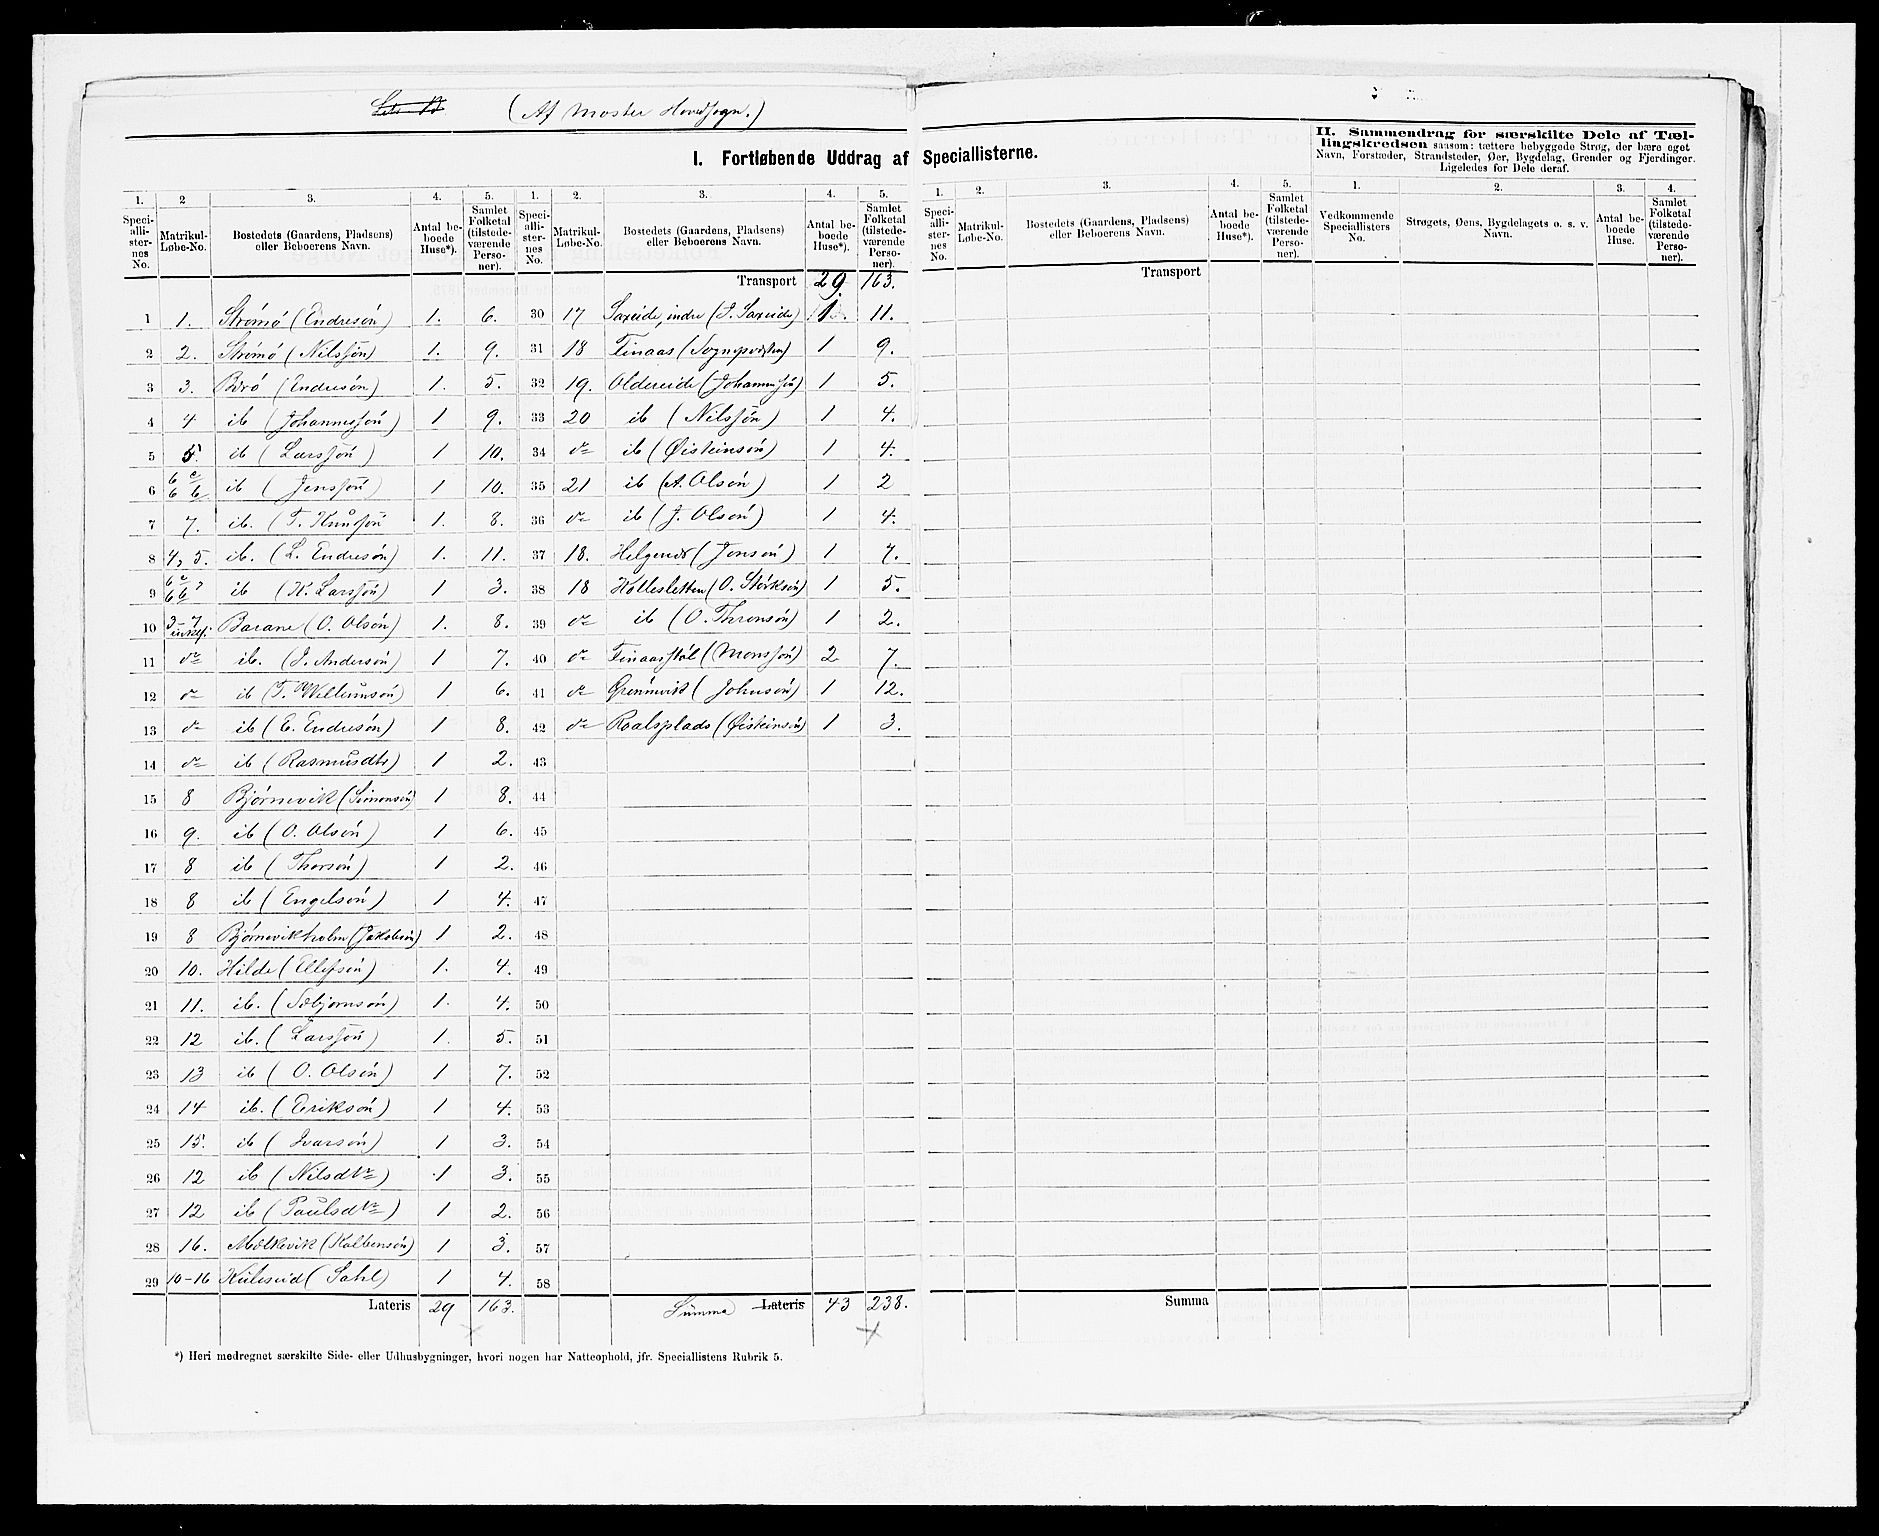 (Af Moster Hovedsogn.)
I. Fortløbende Uddrag af Speciallisterne.
II. Sammendrag for særskilte Dele af Tæl-
lingskredsen saasom: tættere bebyggede Strøg, der bære eget
Navn, Forstæder, Strandsteder, Øer, Bygdelag, Grender og Fjerdinger.
Ligeledes for Dele deraf.
1. 2 3. 4. 5. 1. 2. 3. 4. 5. 1. 2. 3. 4. 5. 1. 2. 3. 4.
Speciallisternes No. Matrikul-Løbe-No. Bostedets (Gaardens, Pladsens) eller Beboerens Navn. Antal beboede Huse*). Samlet Folketal (tilstedeværende Personer).
Speciallisternes No. Matrikul-Løbe-No. Bostedets (Gaardens, Pladsens) eller Beboerens Navn. Antal beboede Huse*). Samlet Folketal (tilstedeværende Personer).
Speciallisternes No. Matrikul-Løbe-No. Bostedets (Gaardens, Pladsens) eller Beboerens Navn. Antal beboede Huse*). Samlet Folketal (tilstedeværende Personer).
Vedkommende Speciallisters No. Strøgets, Øens, Bygdelagets o. s. v. Navn. Antal beboede Huse. Samlet Folketal (tilstedeværende Personer).
Transport 29. 163. Transport
1 1. Strømø (Endresøn) 1. 6. 30 17 Saxeide, indre (J. Saxeide) 1. 11.
2 2. Strømø (Nilssøn) 1. 9. 31 18 Finaas (Sognepresten) 1 9.
3 3. Børø (Endresøn) 1. 5. 32 19. Oldereide (Johannssøn) 1 5.
4 4 ib (Johannssøn) 1 9. 33 20 ib (Nilssøn) 1 4.
5 5. ib (Larssøn) 1 10. 34 do ib (Øisteinsøn) 1 4.
6 6 c 6 b ib (Jenssøn) 1 10. 35 21 ib (A. Olsøn) 1 2
7 7. ib. (T. Knudsøn 1. 8. 36 do ib (J. Olsøn) 1 4.
8 4, 5. ib. (L. Endresøn) 1. 11. 37 18. Helgenes (Jonsøn) 1 7.
9 ib (K. Larssøn) 1 3. 38 18 Kollesletten (O. Størksøn) 1 5.
10 3-7 Barane (O. Olsøn) 1. 8. 39 do ib (O. Thronsøn) 1 2.
11 do ib. (J. Andersøn) 1 7. 40 do Finaasstøl (Monssøn) 2 7.
12 do ib (T. Willumsøn) 1 6. 41 do Grønnevik (Johnsøn) 1 12.
13 do ib (E. Endresøn) 1 8. 42 do Roalsplads (Øisteinsøn) 1 3.
14 do ib (Rasmusdtr) 1 2. 43
15 8 Bjørnevik (Simonsøn) 1 8. 44
16 9. ib (O. Olsøn) 1 6. 45
17 8 ib (Thorsøn) 1 2. 46
18 8 ib (Engelsøn) 1 4. 47
19 8 Bjørnevikholm (Jakobsøn) 1 2. 48
20 10. Hilde (Ellefsøn) 1. 4. 49
21 11. ib. (Asbjørnsøn) 1. 4. 50
22 12 ib. (Larssøn) 1. 5. 51
23 13 ib (O. Olsøn) 1 7. 52
24 14 ib. (Eriksøn) 1 4. 53
25 15. ib (Ivarsøn) 1 3. 54
26 12 ib (Nilsdtr) 1 3. 55
27 12 ib (Paulsdtr) 1 2. 56
28 16. Mælkevik (Kolbensøn) 1 3. 57
29 10-16 Kuleseid (Sahl) 1 4. 58
Lateris 29 163. Summa Lateris 43 238. Summa
*) Heri medregnet særskilte Side- eller Udhusbygninger, hvori nogen har Natteophold, jfr. Speciallistens Rubrik 5.